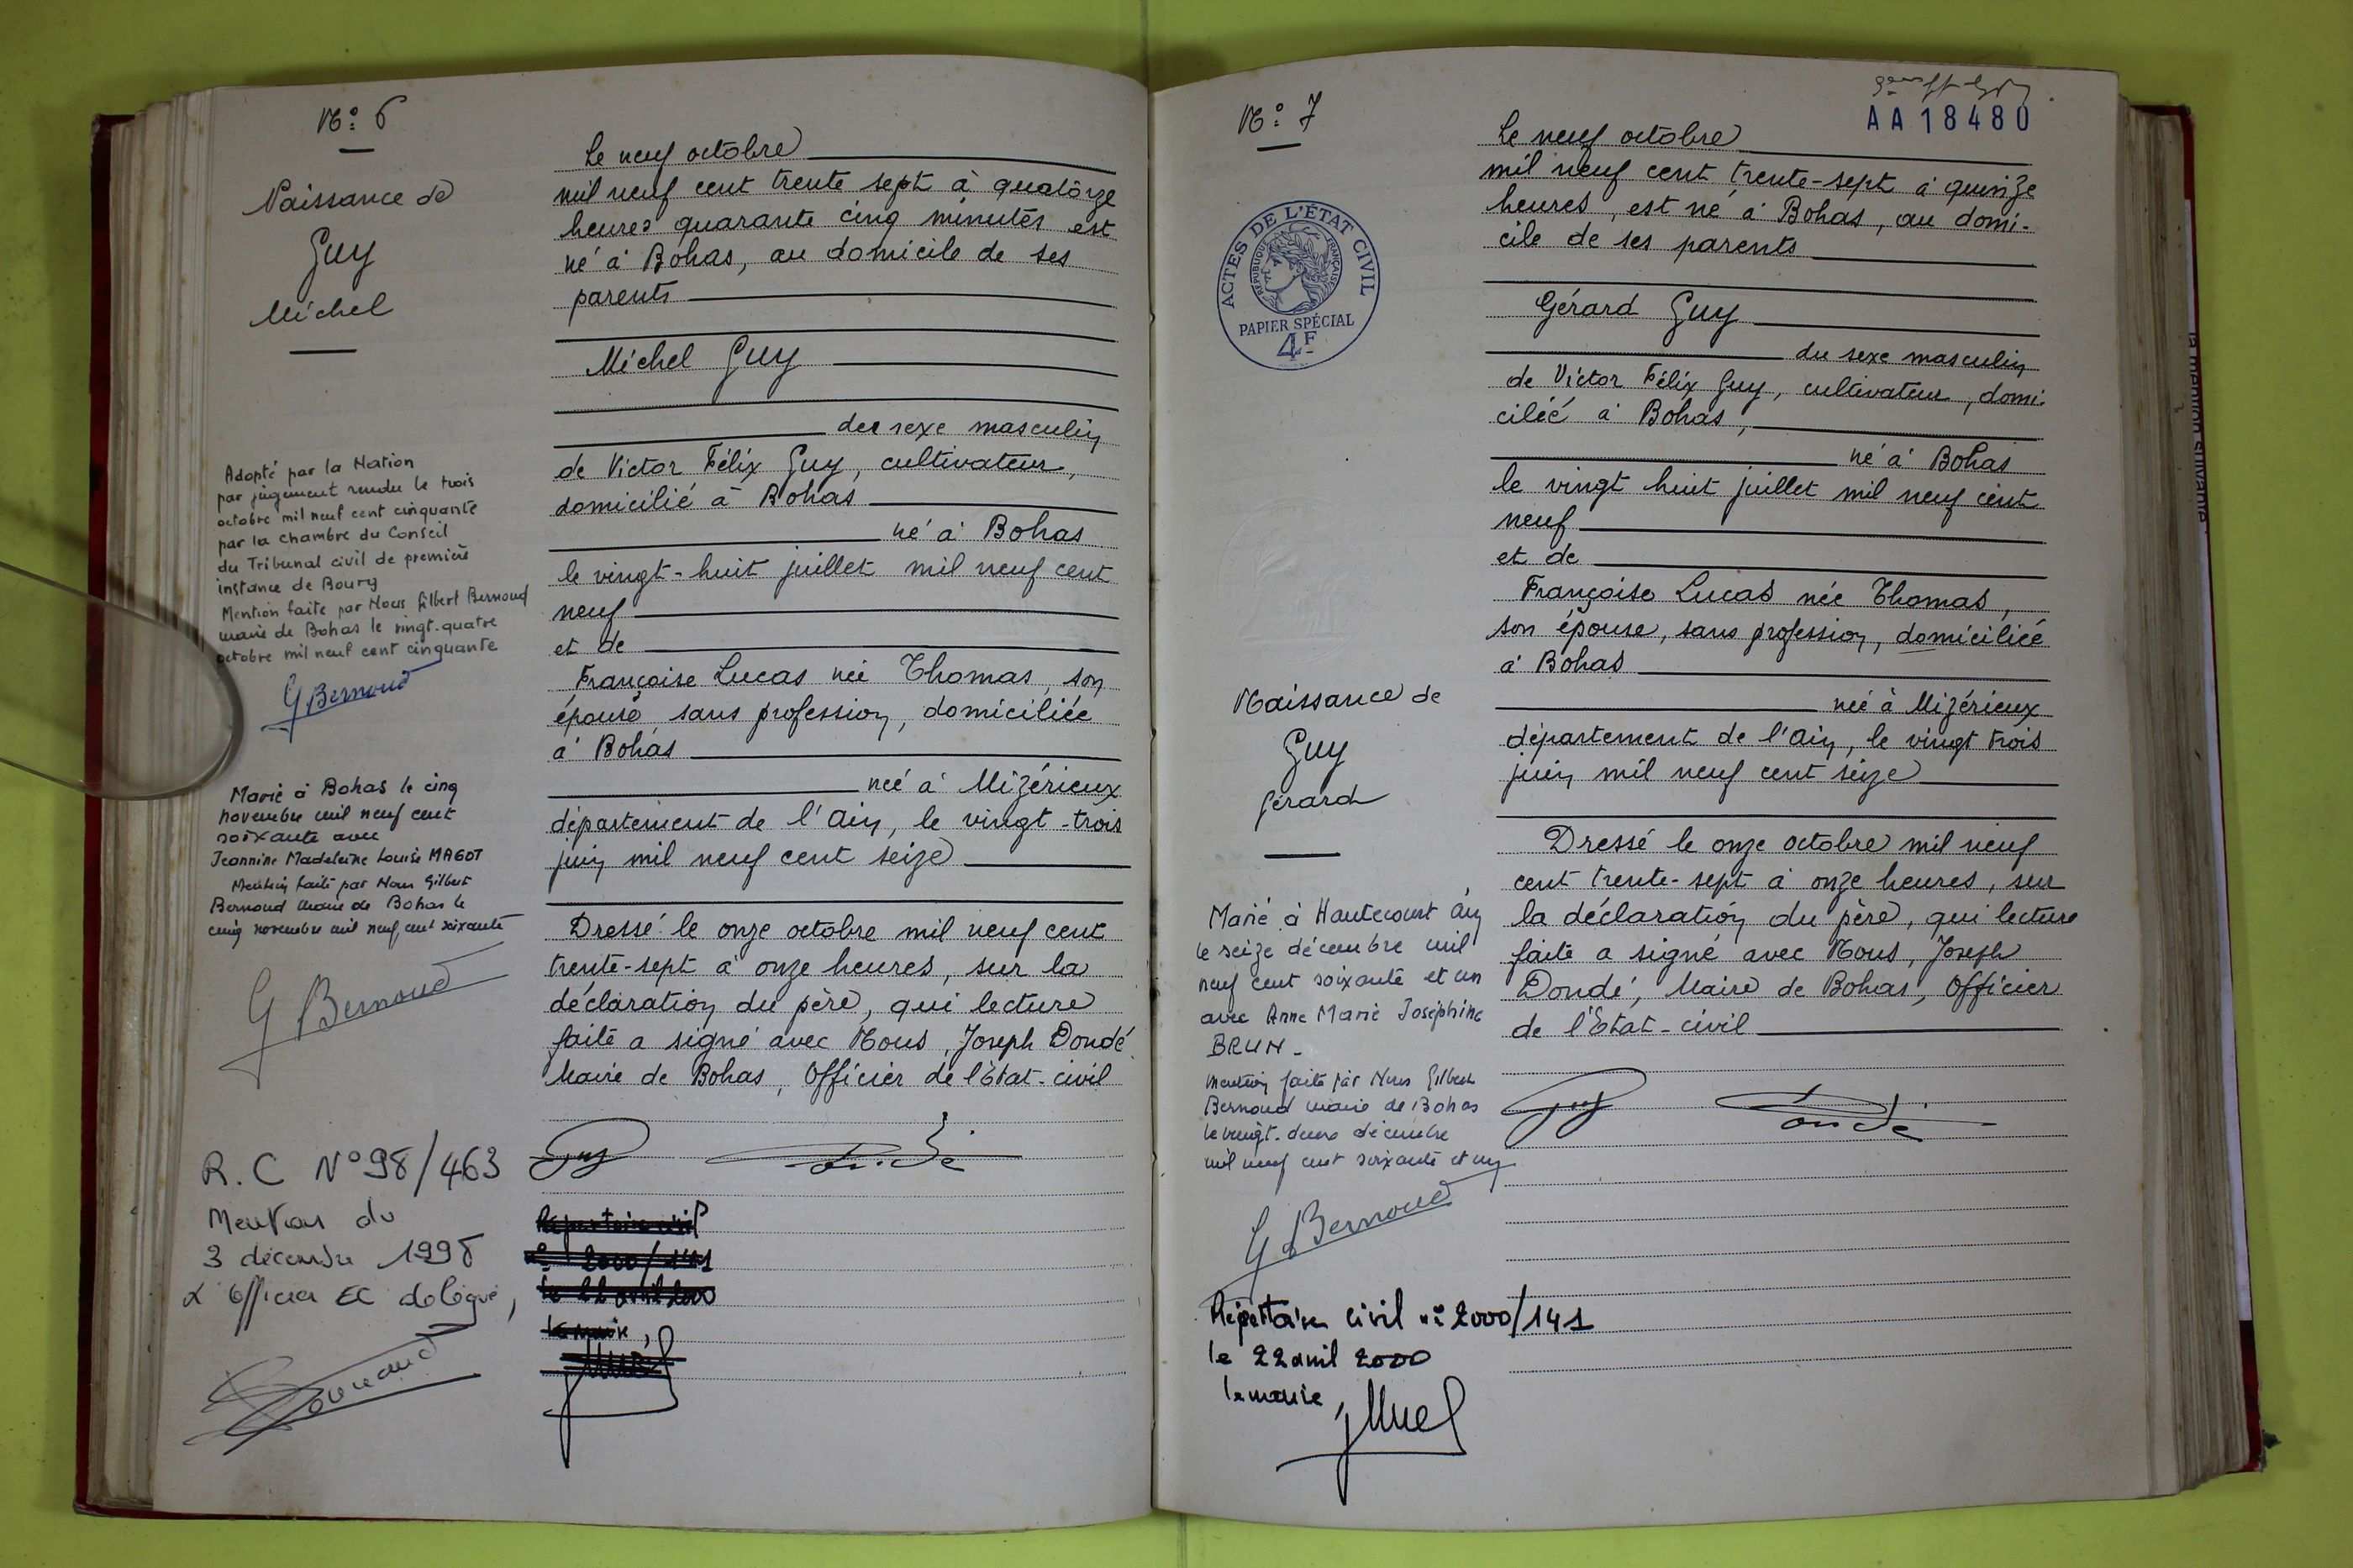 N° 6
Naissance de
Guy
Michel
Adopté par la Nation
par jugement rendu le trois
octobre mil neuf cent cinquante
par la chambre du Conseil
du Tribunal civil de première
instance de Bourg
Mention faite par Nous Gilbert Bernoud
maire de Bohas le vingt-quatre
octobre mil neuf cent cinquante
G Bernoud
Marié à Bohas le cinq
novembre mil neuf cent
soixante avec
Jeannine Madeleine Louise MAGOT
Mention faite par Nous Gilbert
Bernoud maire de Bohas le
cinq novembre mil neuf cent soixante
G Bernoud
R.C N° 98/463
Mention du
3 décembre 1998
L'officier EC délégué,
Le neuf octobre
mil neuf cent trente sept à quatorze
heures quarante cinq minutes est
né à Bohas, au domicile de ses
parents
Michel Guy
du sexe masculin
de Victor Félix Guy, cultivateur,
domicilié à Bohas
né à Bohas
le vingt-huit juillet mil neuf cent
neuf
et de
Françoise Lucas née Thomas, son
épouse sans profession, domiciliée
à Bohas
née à Mizérieux
département de l'Ain, le vingt-trois
juin mil neuf cent seize
Dressé le onze octobre mil neuf cent
trente-sept à onze heures, sur la
déclaration du père, qui lecture
faite a signé avec Nous, Joseph Dondé
Maire de Bohas, Officier de l'Etat-civil
Guy Dondé
Répertoire civil
n° 2000/141
le 22 avril 2000
le maire,
N° 7
AA18480
ACTES DE L'ÉTAT CIVIL
RÉPUBLIQUE FRANÇAISE
PAPIER SPÉCIAL
4F
Naissance de
Guy
Gérard
Marié à Hautecourt Ain
le seize décembre mil
neuf cent soixante et un
avec Anne Marie Joséphine
BRUN -
Mention faite par Nous Gilbert
Bernoud maire de Bohas
le vingt-deux décembre
mil neuf cent soixante et un
G Bernoud
Répertoire civil n° 2000/141
le 22 avril 2000
le maire,
Le neuf octobre
mil neuf cent trente-sept à quinze
heures, est né à Bohas, au domi-
cile de ses parents
Gérard Guy
du sexe masculin
de Victor Félix Guy, cultivateur, domi-
cilié à Bohas,
né à Bohas
le vingt huit juillet mil neuf cent
neuf
et de
Françoise Lucas née Thomas,
son épouse, sans profession, domiciliée
à Bohas
née à Mizérieux
département de l'Ain, le vingt trois
juin mil neuf cent seize
Dressé le onze octobre mil neuf
cent trente-sept à onze heures, sur
la déclaration du père, qui lecture
faite a signé avec Nous, Joseph
Dondé, Maire de Bohas, Officier
de l'Etat-civil
Guy Dondé